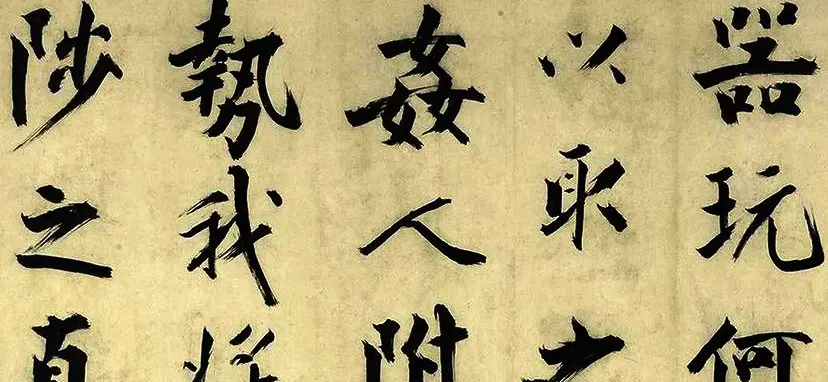 器玩何
以取之
姦人附
勢我將
陟之直